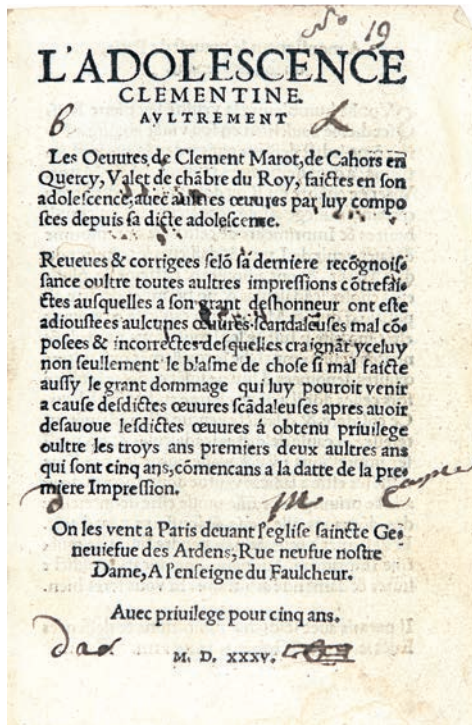 19
L'ADOLESCENCE
CLEMENTINE.
AVLTREMENT
Les Oeuures de Clement Marot, de Cahors en
Quercy, Valet de chãbre du Roy, faictes en son
adolescence, auec aultres œuures par luy compo
sees depuis sa dicte adolescence.
Reueues & corrigees selõ sa derniere recõgnois⸗
sance oultre toutes aultres impressions cõtrefai⸗
ctes ausquelles a son grant deshonneur ont este
adioustees aulcunes œuures scandaleuses mal cõ⸗
posees & incorrectes desquelles craignãt yceluy
non seullement le blasme de chose si mal faicte
aussy le grant dommage qui luy pouroit venir
a cause desdictes œuures scãdaleuses apres auoir
desauoue lesdictes œuures á obtenu priuilege
oultre les troys ans premiers deux aultres ans
qui sont cinq ans, cõmencans a la datte de la pre
miere Impression.
On les vent a Paris deuant l'eglise saincte Ge⸗
neuiefue des Ardens, Rue neufue nostre
Dame, A l'enseigne du Faulcheur.
Auec priuilege pour cinq ans.
M. D. XXXV.